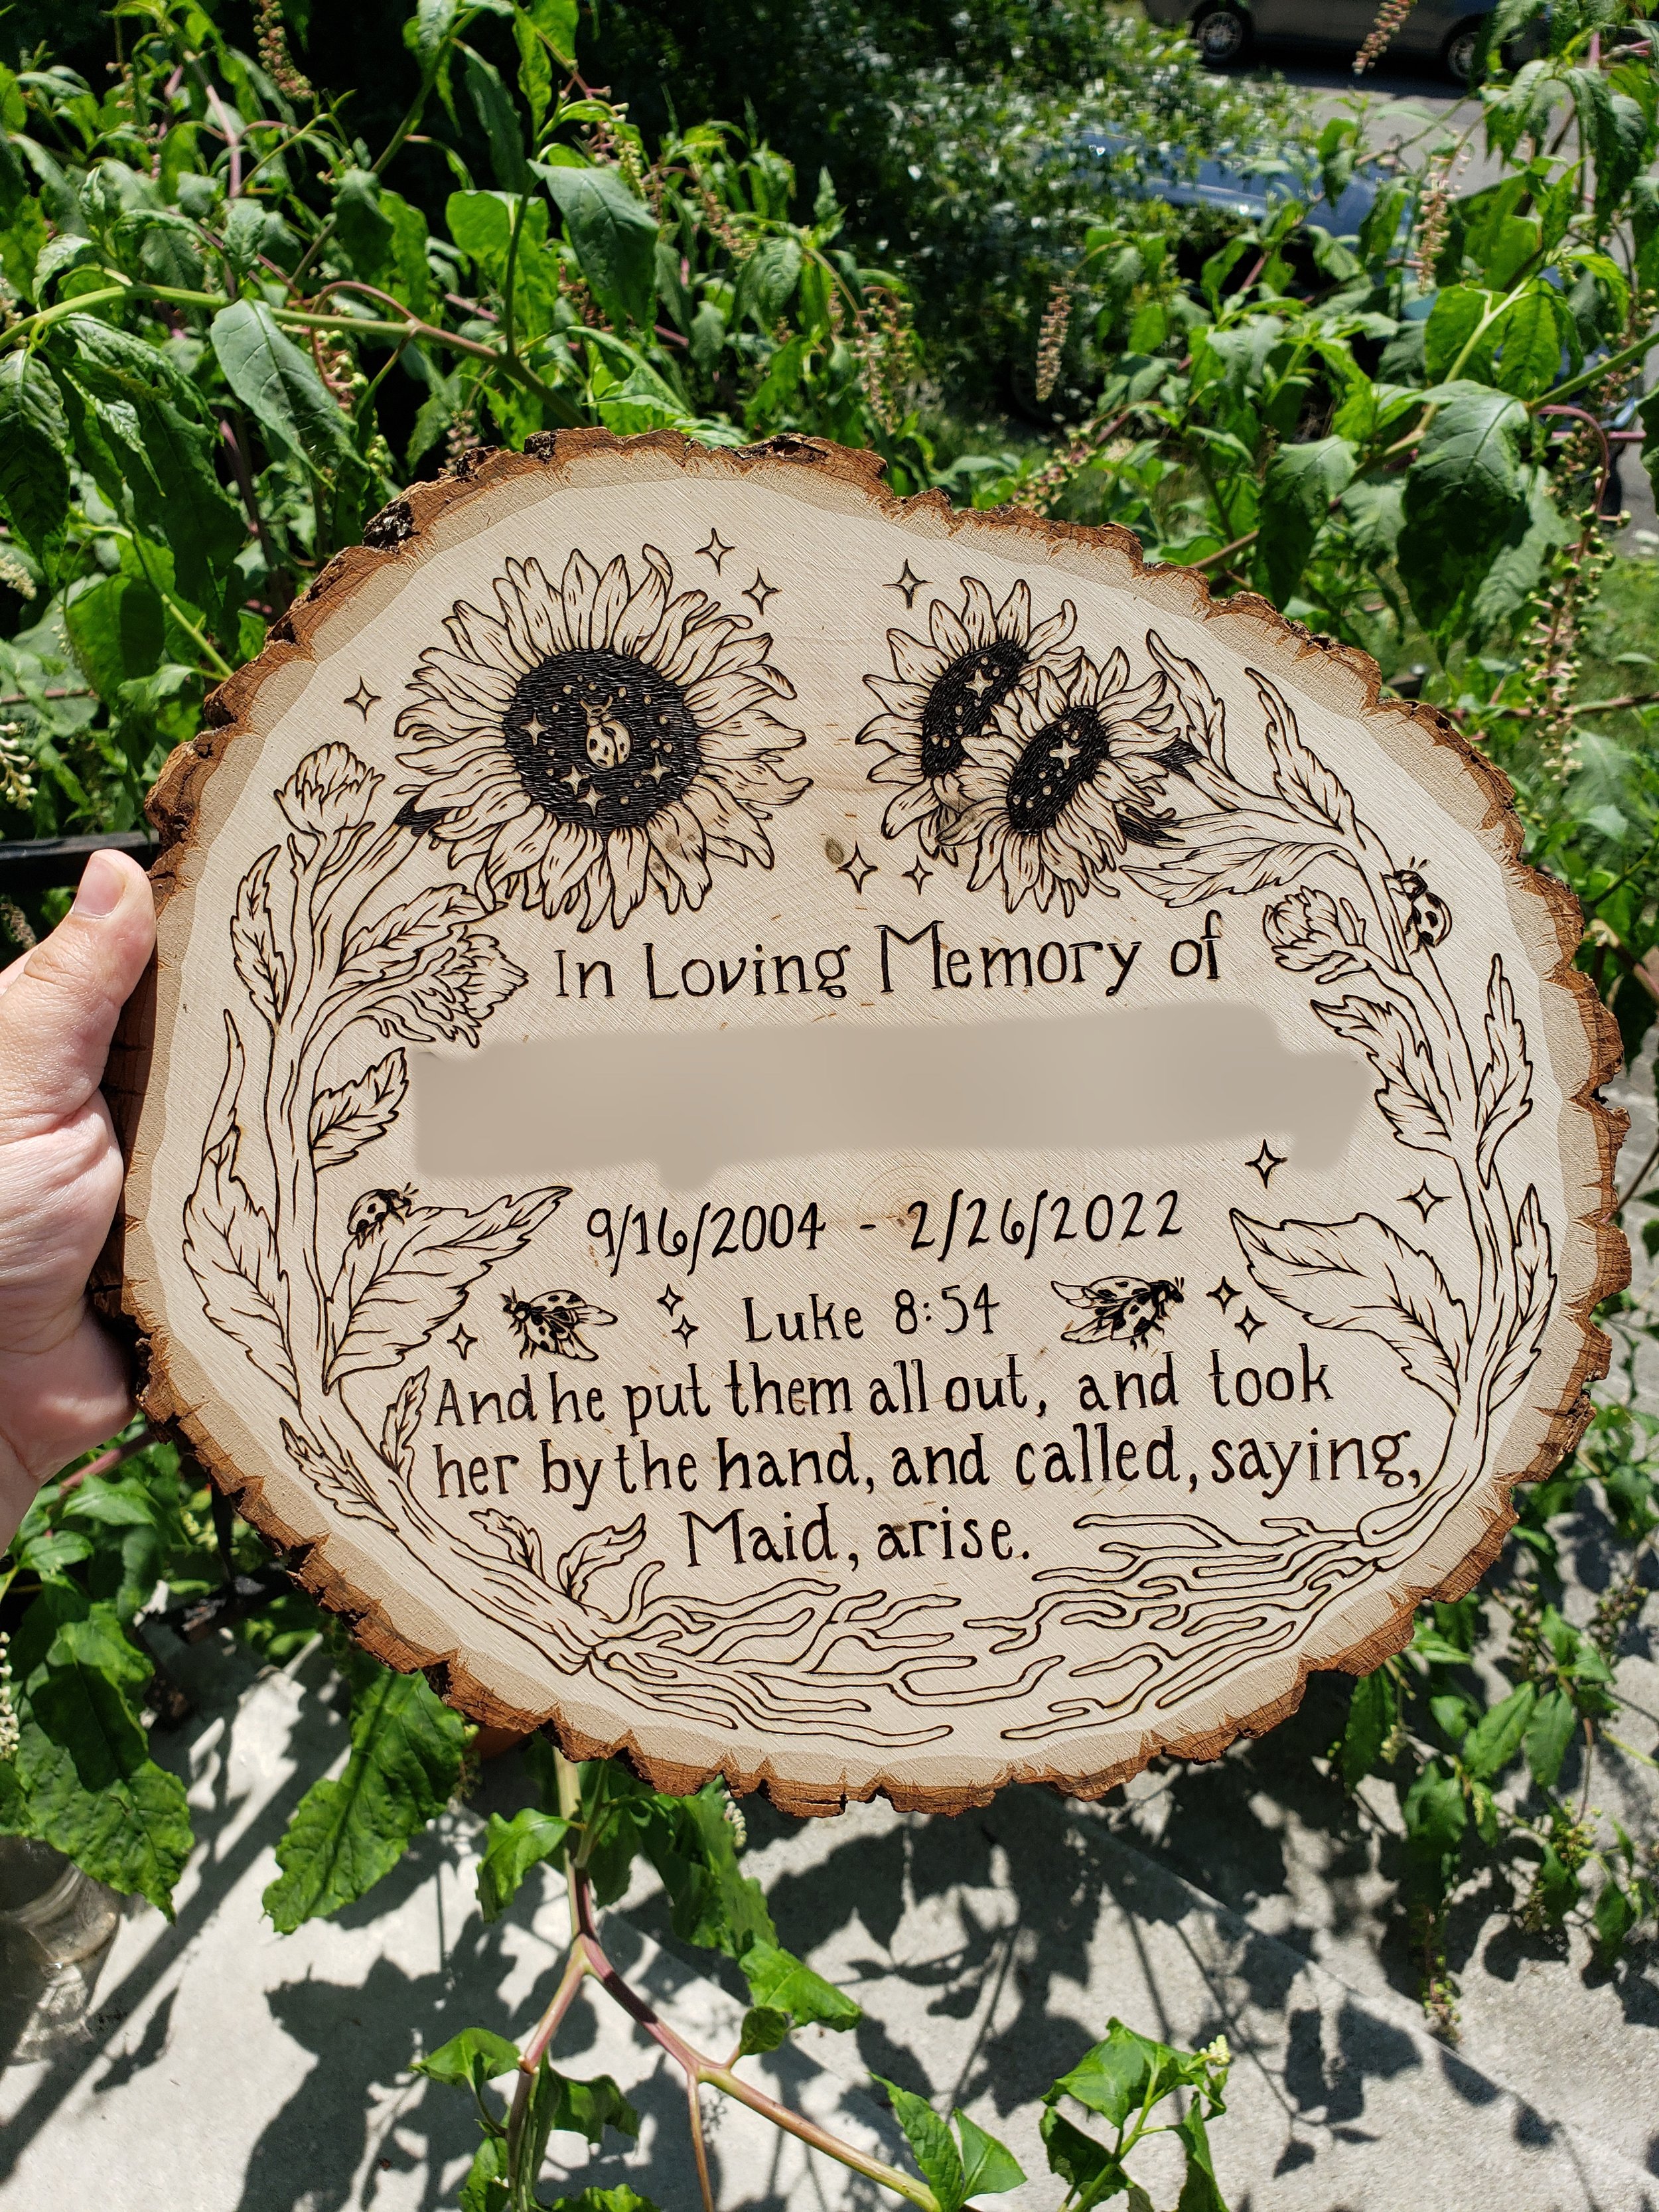 In Loving Memory of
9/16/2004 - 2/26/2022
Luke 8:54
And he put them all out, and took
her by the hand, and called, saying,
Maid, arise.